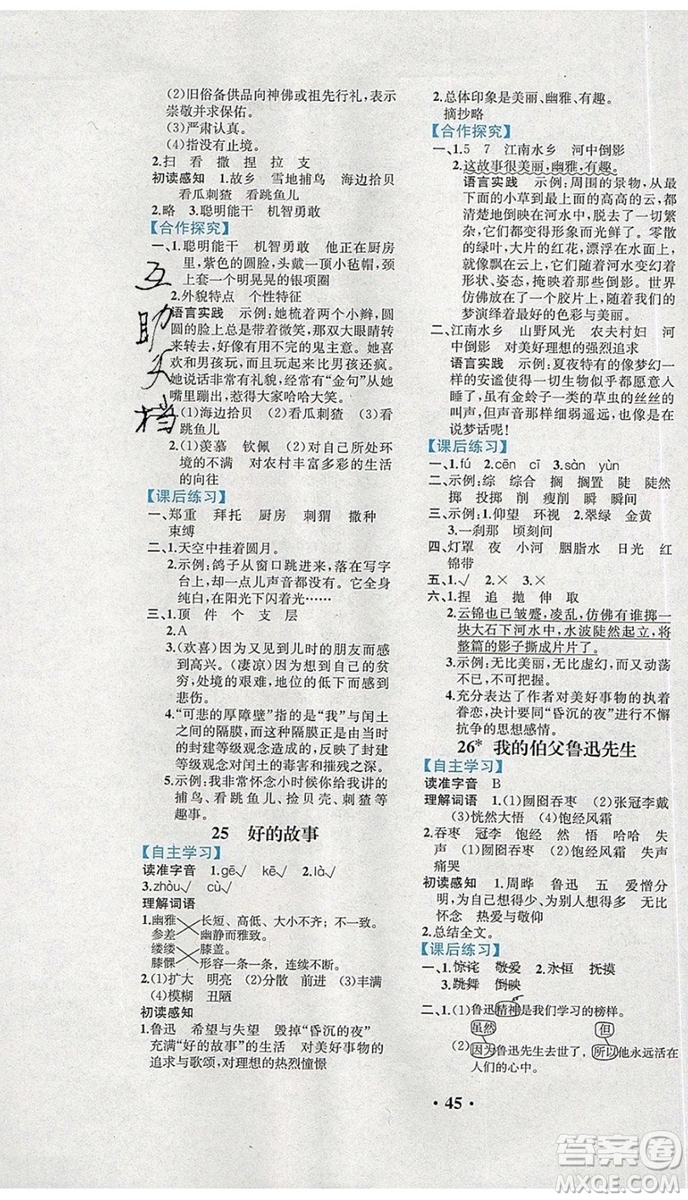 (2)旧俗备供品向神佛或祖先行礼,表示
崇敬并求保佑。
(3)严肃认真。
(4)指没有止境。
2.扫 看 撒 捏 拉 支
初读感知 1.故乡 雪地捕鸟 海边拾贝
看瓜刺猹 看跳鱼儿
2.略 3.聪明能干 机智勇敢
【合作探究】
一、1.聪明能干 机智勇敢 他正在厨房
里,紫色的圆脸,头戴一顶小毡帽,颈
上套一个明晃晃的银项圈
2.外貌特点 个性特征
语言实践 示例:她梳着两个小辫,圆
圆的脸上总是带着微笑,一双大眼睛转
来转去,好像有用不完的鬼主意。她喜
欢和男孩玩,而且玩起来比男孩还疯。
她说话非常有礼貌,经常有“金句”从她
嘴里蹦出来,惹得大家哈哈大笑。
二、1.(1)海边拾贝 (2)看瓜刺猹 (3)看
跳鱼儿
2.(1)羡慕 钦佩 (2)对自己所处环
境的不满 对农村丰富多彩的生活
的向往
【课后练习】
一、郑重 拜托 厨房 刺猬 撒种
束缚
二、1.天空中挂着圆月。
2.示例:鸽子从窗口跳进来,落在写字
台上,一点儿声音都没有。它全身
纯白,在阳光下闪着光……
三、1.顶 件 个 支 层
2.A
3.(欢喜)因为见到儿时的朋友而感
到高兴。(凄凉)因为感到对方的贫
穷,处境的艰难,地位的低下而感到
悲伤。
4.“可悲的厚障壁”指的是“我”与闰土
之间的隔膜,造成这种隔膜的是当时
的封建等级观念,表现作者对封建等
级观念对人的毒害和摧残之深。
5.示例:我会怀念小时候你给我讲的
捕鸟、看跳鱼儿、捡贝壳、刺猹等
趣事。
25 好的故事
【自主学习】
读准字音 1.gē√ gě√ 2.là√
3.zhòu√ cù√
理解词语
1.幽雅 长短、高低、大小不齐;不一致。
参差 幽静而雅致。
缕缕 膝盖。
膝髁 形容一条一条,连续不断。
2.(1)扩大 明亮 (2)消散 (3)丰满
(4)模糊 丑陋
初读感知
1.鲁迅 希望与失望 毁掉“昏沉的夜”
充满“好的故事”的生活 对美好事物的
追求与歌颂,对理想的热烈憧憬
2.总体印象是美丽、幽雅、有趣。
摘抄略
【合作探究】
一、1.5 7 江南水乡 河中倒影
2.这故事很美丽,幽雅,有趣。
语言实践 示例:周围的景物,从最
下面的小草到最上面的高高的云,都
清楚地倒映在河水中,融于一切。零
散的绿叶、大片的红花,漂浮在水面
上,就像飘荡在云间。河水变幻着
形状、姿态,掩映着美丽的景色。世
间仿佛放映了一场美丽的梦,这场
梦演绎着最美的色彩与万物。
二、江南水乡 山野风光 农夫村妇 河
中倒影 对美好理想的强烈追求
语言实践 示例:夏夜特有的像梦幻
一样的安谧笼罩着一切,仿佛星星都
睡着了,虽然金铃子不时发出丝丝的
叫声,但这声音那样细弱遥远,也像在
说梦话呢!
【课后练习】
一、1.fú 2.cēn cī 3.sàn yùn
二、示例:综 综合 搁 搁置 陡 陡然
掷 投掷 削 瘦削 瞬 瞬间
三、示例:1.仰望 环视 2.翠绿 金黄
3.一刹那 顷刻间
四、灯罩 夜 小河 胭脂水 日光 红
锦带
五、1.√ 2.× 3.√
六、1.捏 追 抛 伸 取
2.云锦也已皱蹙,凌乱,仿佛有谁掷一
块大石下河水中,水波陡然起立,将
整篇的影子撕成片片了。
3.示例:无比美丽,无比虚幻,而又
无可把握。
4.充分表达了作者对美好事物的执着
眷恋,决计要同“昏沉的夜”进行不懈
抗争的思想感情。
26* 我的伯父鲁迅先生
【自主学习】
读准字音 B
理解词语 1.(1)囫囵吞枣 (2)张冠李戴
(3)恍然大悟 (4)饱经风霜
2.吞枣 冠李 饱经 恍然 失声
(1)囫囵吞枣 (2)饱经风霜 (3)失声
痛哭
初读感知 1.周晔 鲁迅 五 爱憎分
明 为自己想得少,为别人想得多 无比
怀念 热爱与敬仰
2.总结全文。
【课后练习】
一、1.惊诧 敬爱 2.永恒 抚摸
3.跳舞 倒映
二、1.(1)鲁迅精神是我们学习的榜样。
虽然 但
(2)因为鲁迅先生去世了,所以他永远活在
人们的心中。
互助文档
· 45 ·
答案圈
MXQE.COM